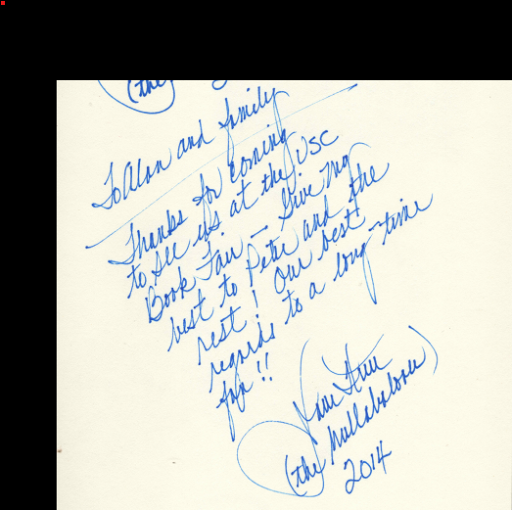 (the
To Alan and family
Thanks for coming
to see us at the USC
Book Fair – Give my
best to Peter and the
rest! Our best
regards to a long-time
fan!!
Ann
(the hullabaloos)
2014